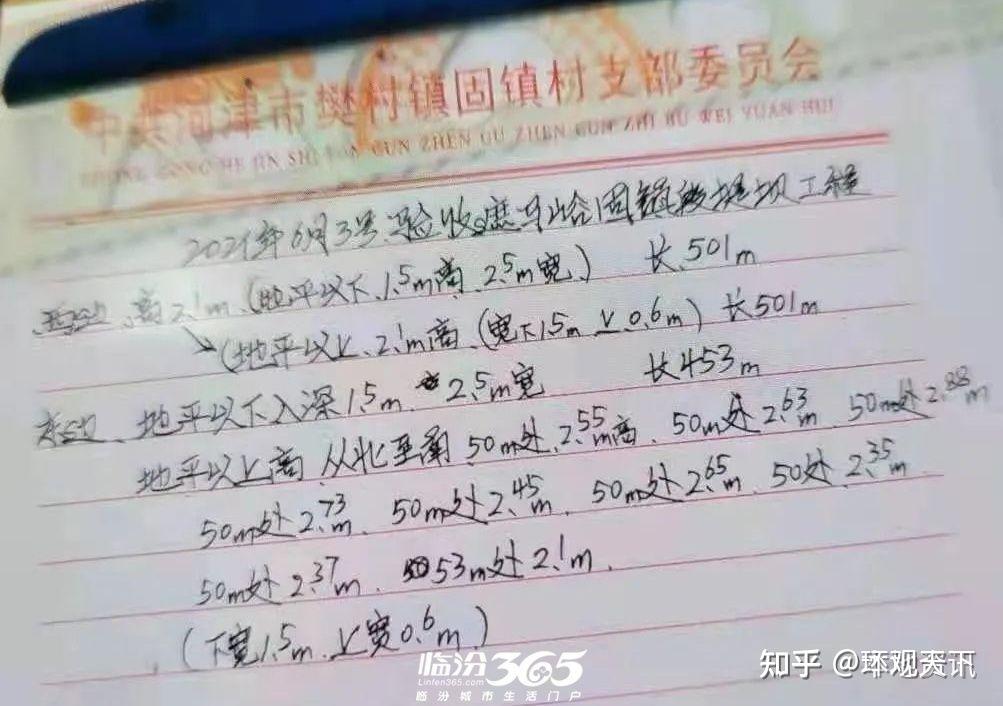 中共河津市樊村镇固镇村支部委员会
ZHONG GONG HE JIN SHI FAN CUN ZHEN GU ZHEN CUN ZHI BU WEI YUAN HUI
2021年6月3号验收遮马峪固镇段堤坝工程
西边、高2.1m、(地平以下、1.5m高、2.5m宽) 长501m
(地平以上、2.1m高、(宽下1.5m上0.6m) 长501m
东边、地平以下入深1.5m、2.5m宽 长453m
地平以上高、从北至南、50m处、2.55m高、50m处2.63m、50m处2.88m
50m处2.73m、50m处2.45m、50m处2.65m、50处2.35m
50m处2.37m、53m处2.1m、
(下宽1.5m、上宽0.6m)
临汾365
Linfen365.com
临汾城市生活门户
知乎 @环观资讯